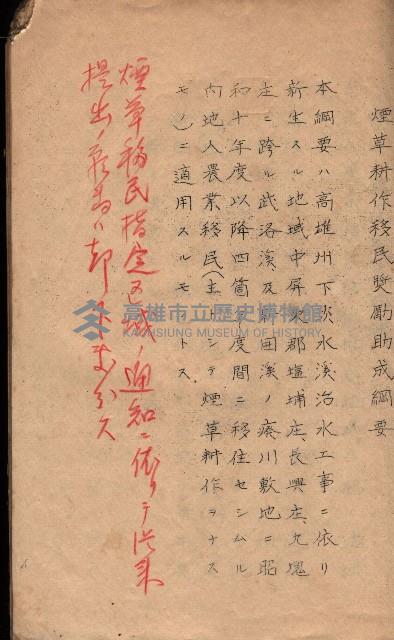 煙草耕作移民奨励助成綱要
本綱要ハ高雄州下淡水溪治水工事ニ依リ
新生スル地域中屏東郡塩埔庄、長興庄、九塊
庄ニ跨ル武洛溪及 溪ノ廃川敷地ニ昭
和十年度以降四箇年度間ニ移住セシムル
内地人農業移民(主トシテ煙草耕作ヲナス
モノ)ニ適用スルモノトス
煙草移民指定区域ノ通知ニ依リテ従来
提出ノ ハ却下 ス
高雄市立歷史博物館
KAOHSIUNG MUSEUM OF HISTORY